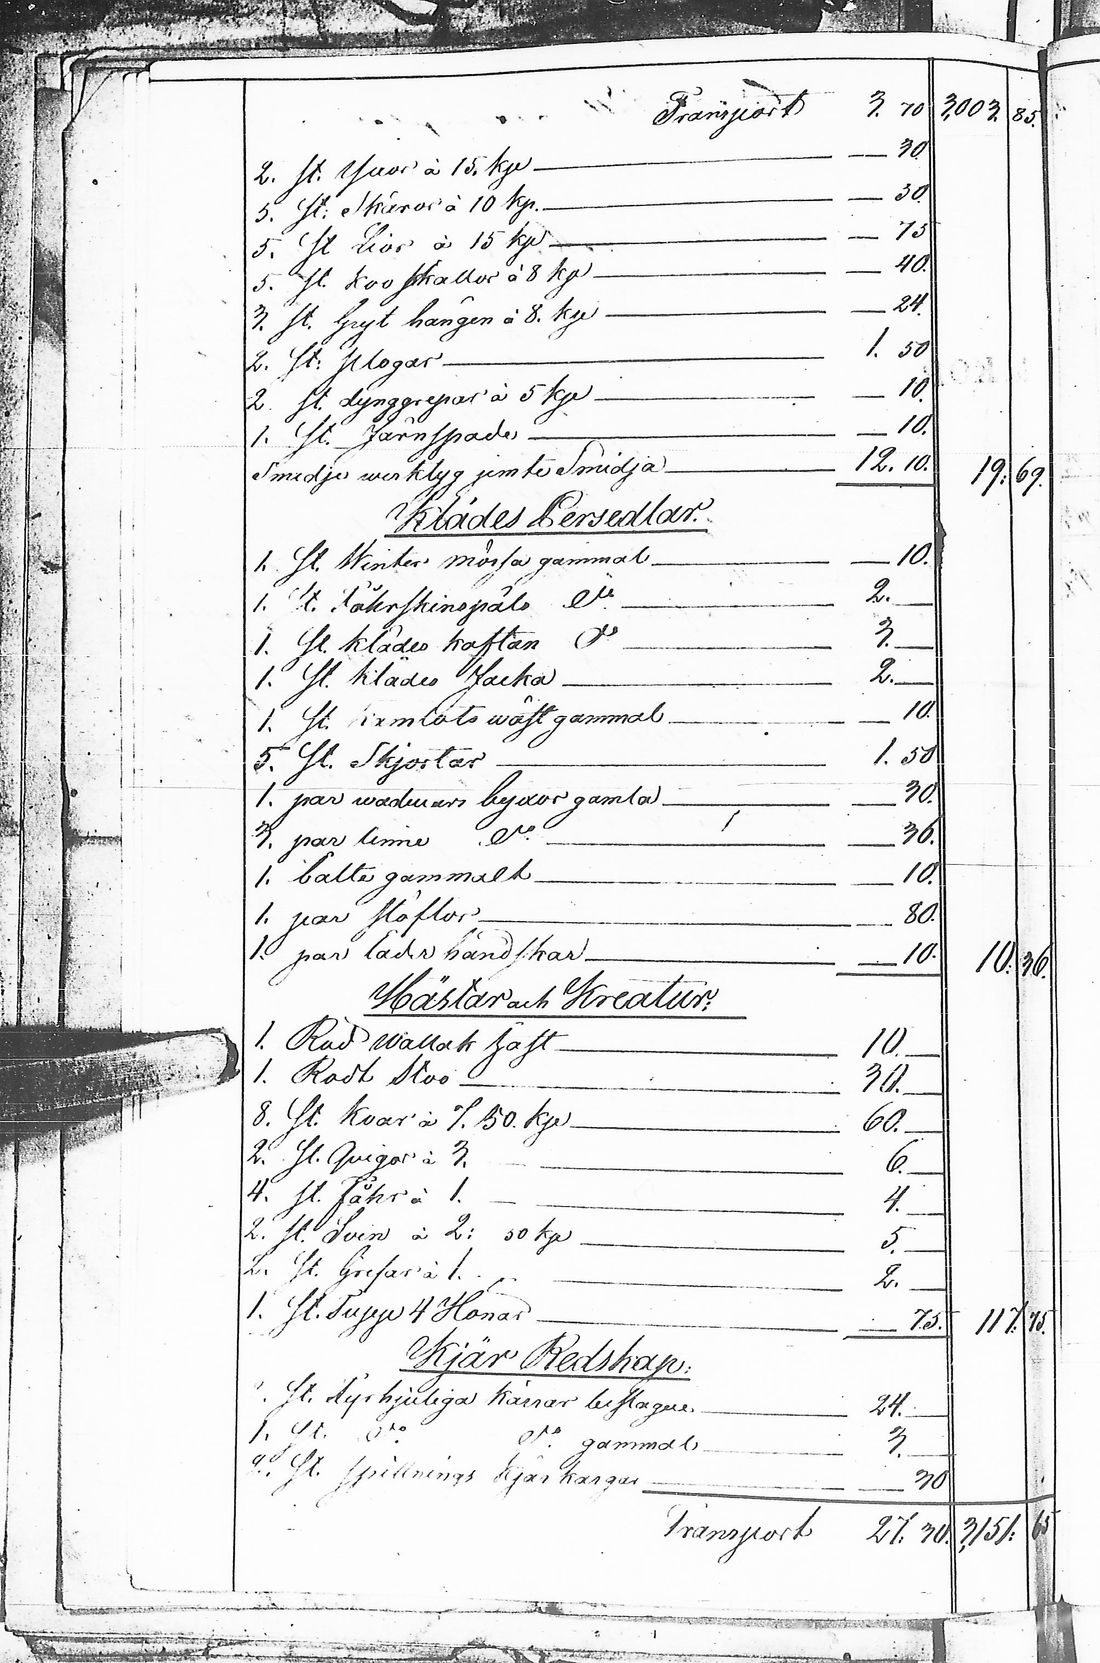 Transport 3. 70 3,003. 85.
2. St. Yxor à 15. kpr — 30.
5. St. Skäror à 10 kp. — 50.
5. St Lior à 15 kpr — 75
5. St. Koo skallor à 8 kpr — 40.
3. St. Gryt hängen à 8. kpr — 24.
2. St. plogar 1. 50
2 St. dynggrepar à 5 kpr — 10.
1. St. Järnspade — 10.
Smidje werktyg jemte Smidja 12. 10. 19. 69.
Klädes Persedlar.
1. St. Winter mössa gammal — 10.
1. St. Fåhrskinspäls Do 2. —
1. St. klädes kaftan Do 3. —
1. St. Klädes Jacka 2. —
1. St. wäst gammal — 10.
5. St. Skjortar 1. 50
1. par wadmars byxor gamla — 30.
3. par linne Do — 36.
1. bälte gammalt — 10.
1. par stöflor — 80.
1. par Läder händskar — 10. 10. 36.
Hästar och Kreatur.
1. Röd Wallak häst 10. —
1. Rödt Stoo 30. —
8. St. Koar à 7. 50. kpr 60. —
2. St. Quigor à 3. 6. —
4. St. Fåhr à 1. — 4. —
2. St. Svin à 2: 50 kpr 5. —
2. St. Grisar à 1. 2. —
1. St. Tupp 4 Hönor — 75. 117. 75.
Kjär Redskap.
St. fyrhjuliga kärrar 24. —
1. St. Do Do gammal 3. —
St. spillnings kjär — 30
Transport 27. 30. 3,151. 65